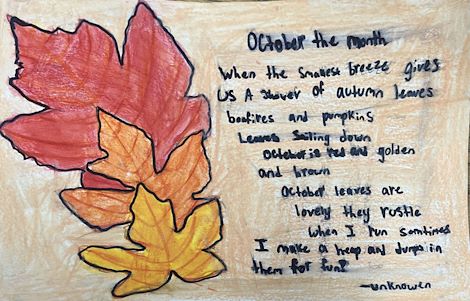 October the month
When the smallest breeze gives
us A shower of autumn leaves
bonfires and pumpkins
Leaves Sailing down
October is red and golden
and brown
October leaves are
lovely they rustle
when I run somtimes
I make a heap and Jumps in
them for fun!
—unknowen